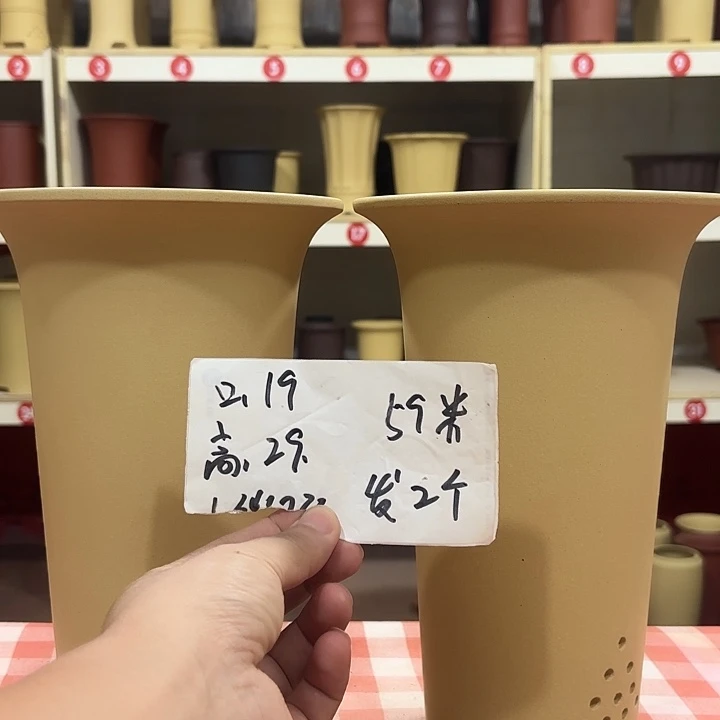 2
3
4
5
6
7
8
9
17
口.19
高.29.
59米
发2个
21